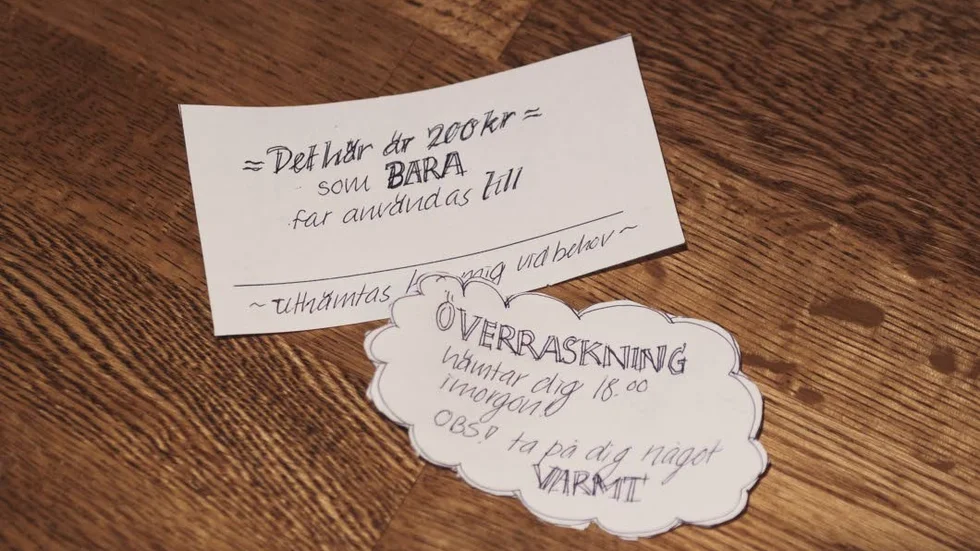 ≈ Det här är 200kr ≈
som BARA
får användas till
~ uthämtas mig vid behov ~
ÖVERRASKNING
hämtar dig 18.00
imorgon!
OBS! ta på dig något
VARMT